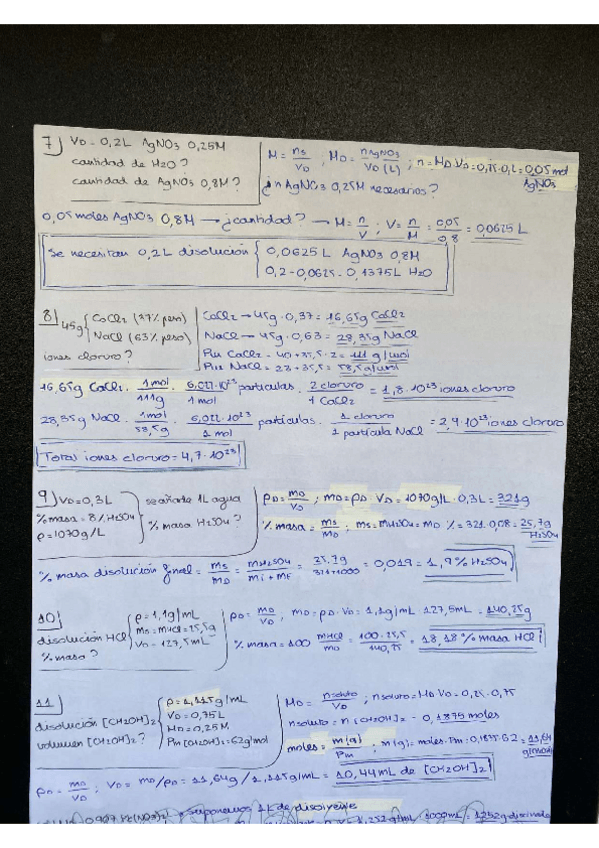 7) VD = 0,2L AgNO3 0,25M
cantidad de H2O?
cantidad de AgNO3 0,8M?
M = ns/VD ; MD = nAgNO3/VD (L) ; n = MD·VD = 0,25·0,2 = 0,05 mol AgNO3
¿n AgNO3 0,25M necesarios?
0,05 moles AgNO3 0,8M → ¿cantidad? → M = n/V ; V = n/M = 0,05/0,8 = 0,0625 L
Se necesitan 0,2L disolución { 0,0625L AgNO3 0,8M
0,2 - 0,0625 = 0,1375L H2O
8) 45g { CaCl2 (37% peso)
NaCl (63% peso)
iones cloruro?
CaCl2 → 45g · 0,37 = 16,65g CaCl2
NaCl → 45g · 0,63 = 28,35g NaCl
Pm CaCl2 = 40 + 35,5 · 2 = 111 g/mol
Pm NaCl = 23 + 35,5 = 58,5g/mol
16,65g CaCl2 · 1mol/111g · 6,022·10²³ partículas/1 mol · 2 cloruro/1 CaCl2 = 1,8·10²³ iones cloruro
28,35g NaCl · 1mol/58,5g · 6,022·10²³ partículas/1 mol · 1 cloruro/1 partícula NaCl = 2,9·10²³ iones cloruro
Total iones cloruro = 4,7·10²³
9) VD = 0,3L
% masa = 8% H2SO4
ρ = 1070g/L
se añade 1L agua
% masa H2SO4?
ρD = mD/VD ; mD = ρD · VD = 1070g/L · 0,3L = 321g
% masa = ms/mD ; ms = mH2SO4 = mD · % = 321·0,08 = 25,7g H2SO4
% masa disolución final = ms/mD = mH2SO4/mi + mF = 25,7g/321+1000 = 0,019 = 1,9% H2SO4
10)
disolución HCl
% masa?
ρ = 1,1g/mL
ms = mHCl = 25,5g
VD = 127,5mL
ρD = mD/VD ; mD = ρD · VD = 1,1g/mL · 127,5mL = 140,25g
% masa = 100 mHCl/mD = 100·25,5/140,25 = 18,18% masa HCl
11)
disolución [CH2OH]2
volumen [CH2OH]2?
ρ = 1,115g/mL
VD = 0,75L
MD = 0,25M
Pm [CH2OH]2 = 62g/mol
MD = nsoluto/VD ; nsoluto = MD·VD = 0,25·0,75
nsoluto = n [CH2OH]2 = 0,1875 moles
moles = m(g)/Pm ; m(g) = moles·Pm = 0,1875·62 = 11,64
ρD = mD/VD ; VD = mD/ρD = 11,64g / 1,115g/mL = 10,44mL de [CH2OH]2
suponemos 1L de disolvente